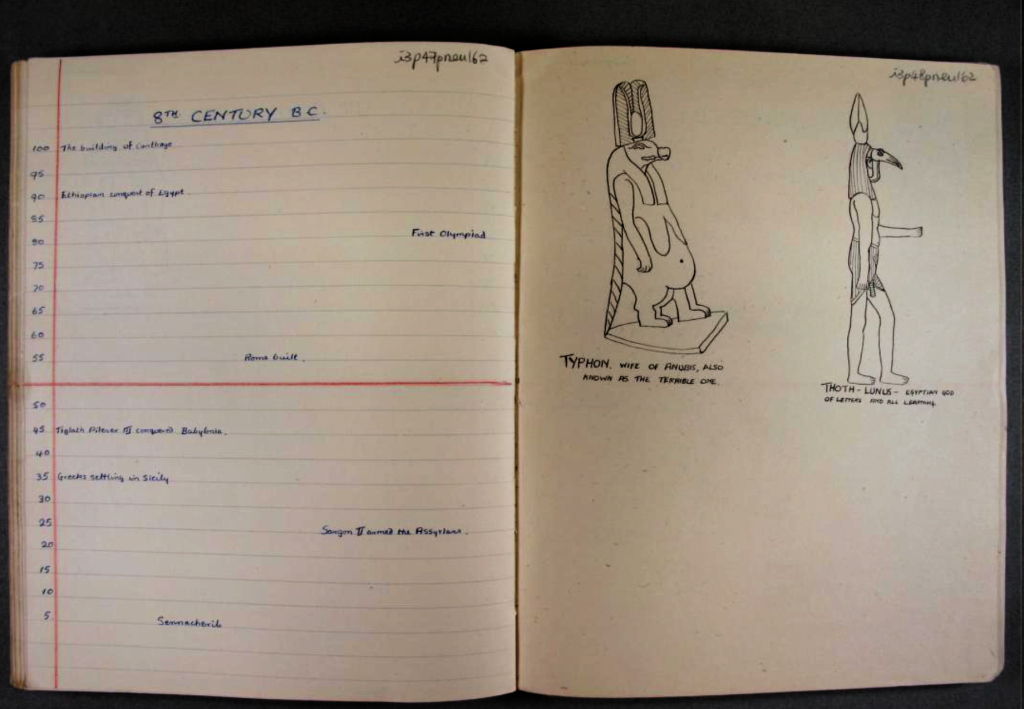 i3p47pneu162
8TH CENTURY B C.
100 The building of Carthage
95
90 Ethiopian conquest of Egypt.
85
First Olympiad
80
75
70
65
60
55 Rome built.
50
45 Tiglath Pileser III conquered Babylonia.
40
35 Greeks settling in Sicily
30
25
Sargon II armed the Assyrians.
20
15
10
5. Sennacherib
i3p48pneu162
TYPHON. WIFE OF ANUBIS, ALSO
KNOWN AS THE TERRIBLE ONE.
THOTH - LUNUS - EGYPTIAN GOD
OF LETTERS AND ALL LEARNING.